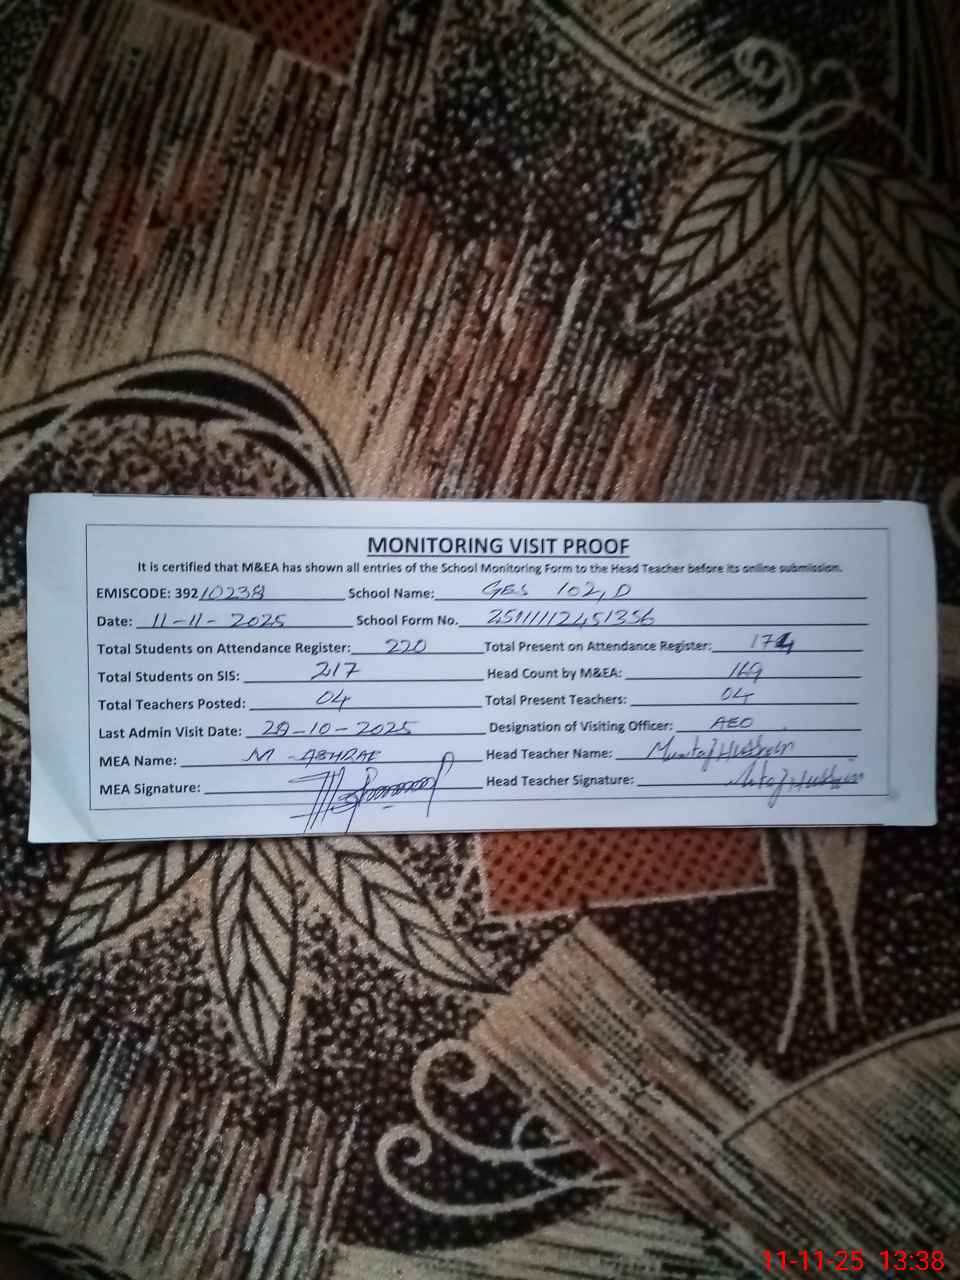 MONITORING VISIT PROOF
It is certified that M&EA has shown all entries of the School Monitoring Form to the Head Teacher before its online submission.
EMISCODE: 39210238 School Name: GES 102, D
Date: 11-11-2025 School Form No. 25111112451356
Total Students on Attendance Register: 220 Total Present on Attendance Register: 174
Total Students on SIS: 217 Head Count by M&EA: 169
Total Teachers Posted: 04 Total Present Teachers: 04
Last Admin Visit Date: 29-10-2025 Designation of Visiting Officer: AEO
MEA Name: M - Head Teacher Name: Hussain
MEA Signature: Head Teacher Signature:
11-11-25 13:38